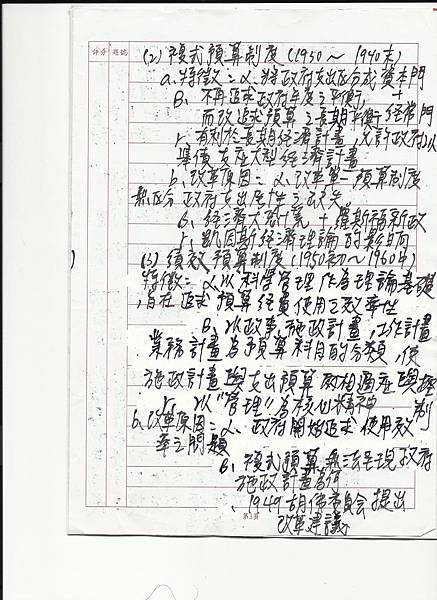 評分 題號
(2) 複式預算制度 (1930～1940末)
a.特徵=α.將政府支出區分成資本門
+
經常門
β. 不再追求政府年度之平衡,
而改追求預算之長期平衡
γ 有利於長期經濟計畫,允許政府以
舉債支應大型經濟計畫
b.改革原因=α.改革單一預算制度
無區分政府支出屬性之缺失。
β 經濟大恐慌+羅斯福新政
γ. 凱因斯經濟理論的影響
(3) 績效預算制度(1950初～1960中)
特徵=α以科學管理作為理論基礎
,旨在追求預算經費使用之效率性
β. 以政事,施政計畫,工作計畫
業務計畫為預算科目的分類,使
施政計畫與支出預算兩相適應與控
制
γ. 以"管理"為核心精神
b.改革原因=α、政府開始追求使用效
率之問題
β. 複式預算無法呈現政府
施政計畫為何
、1949胡佛委員會提出
改革建議
第3頁